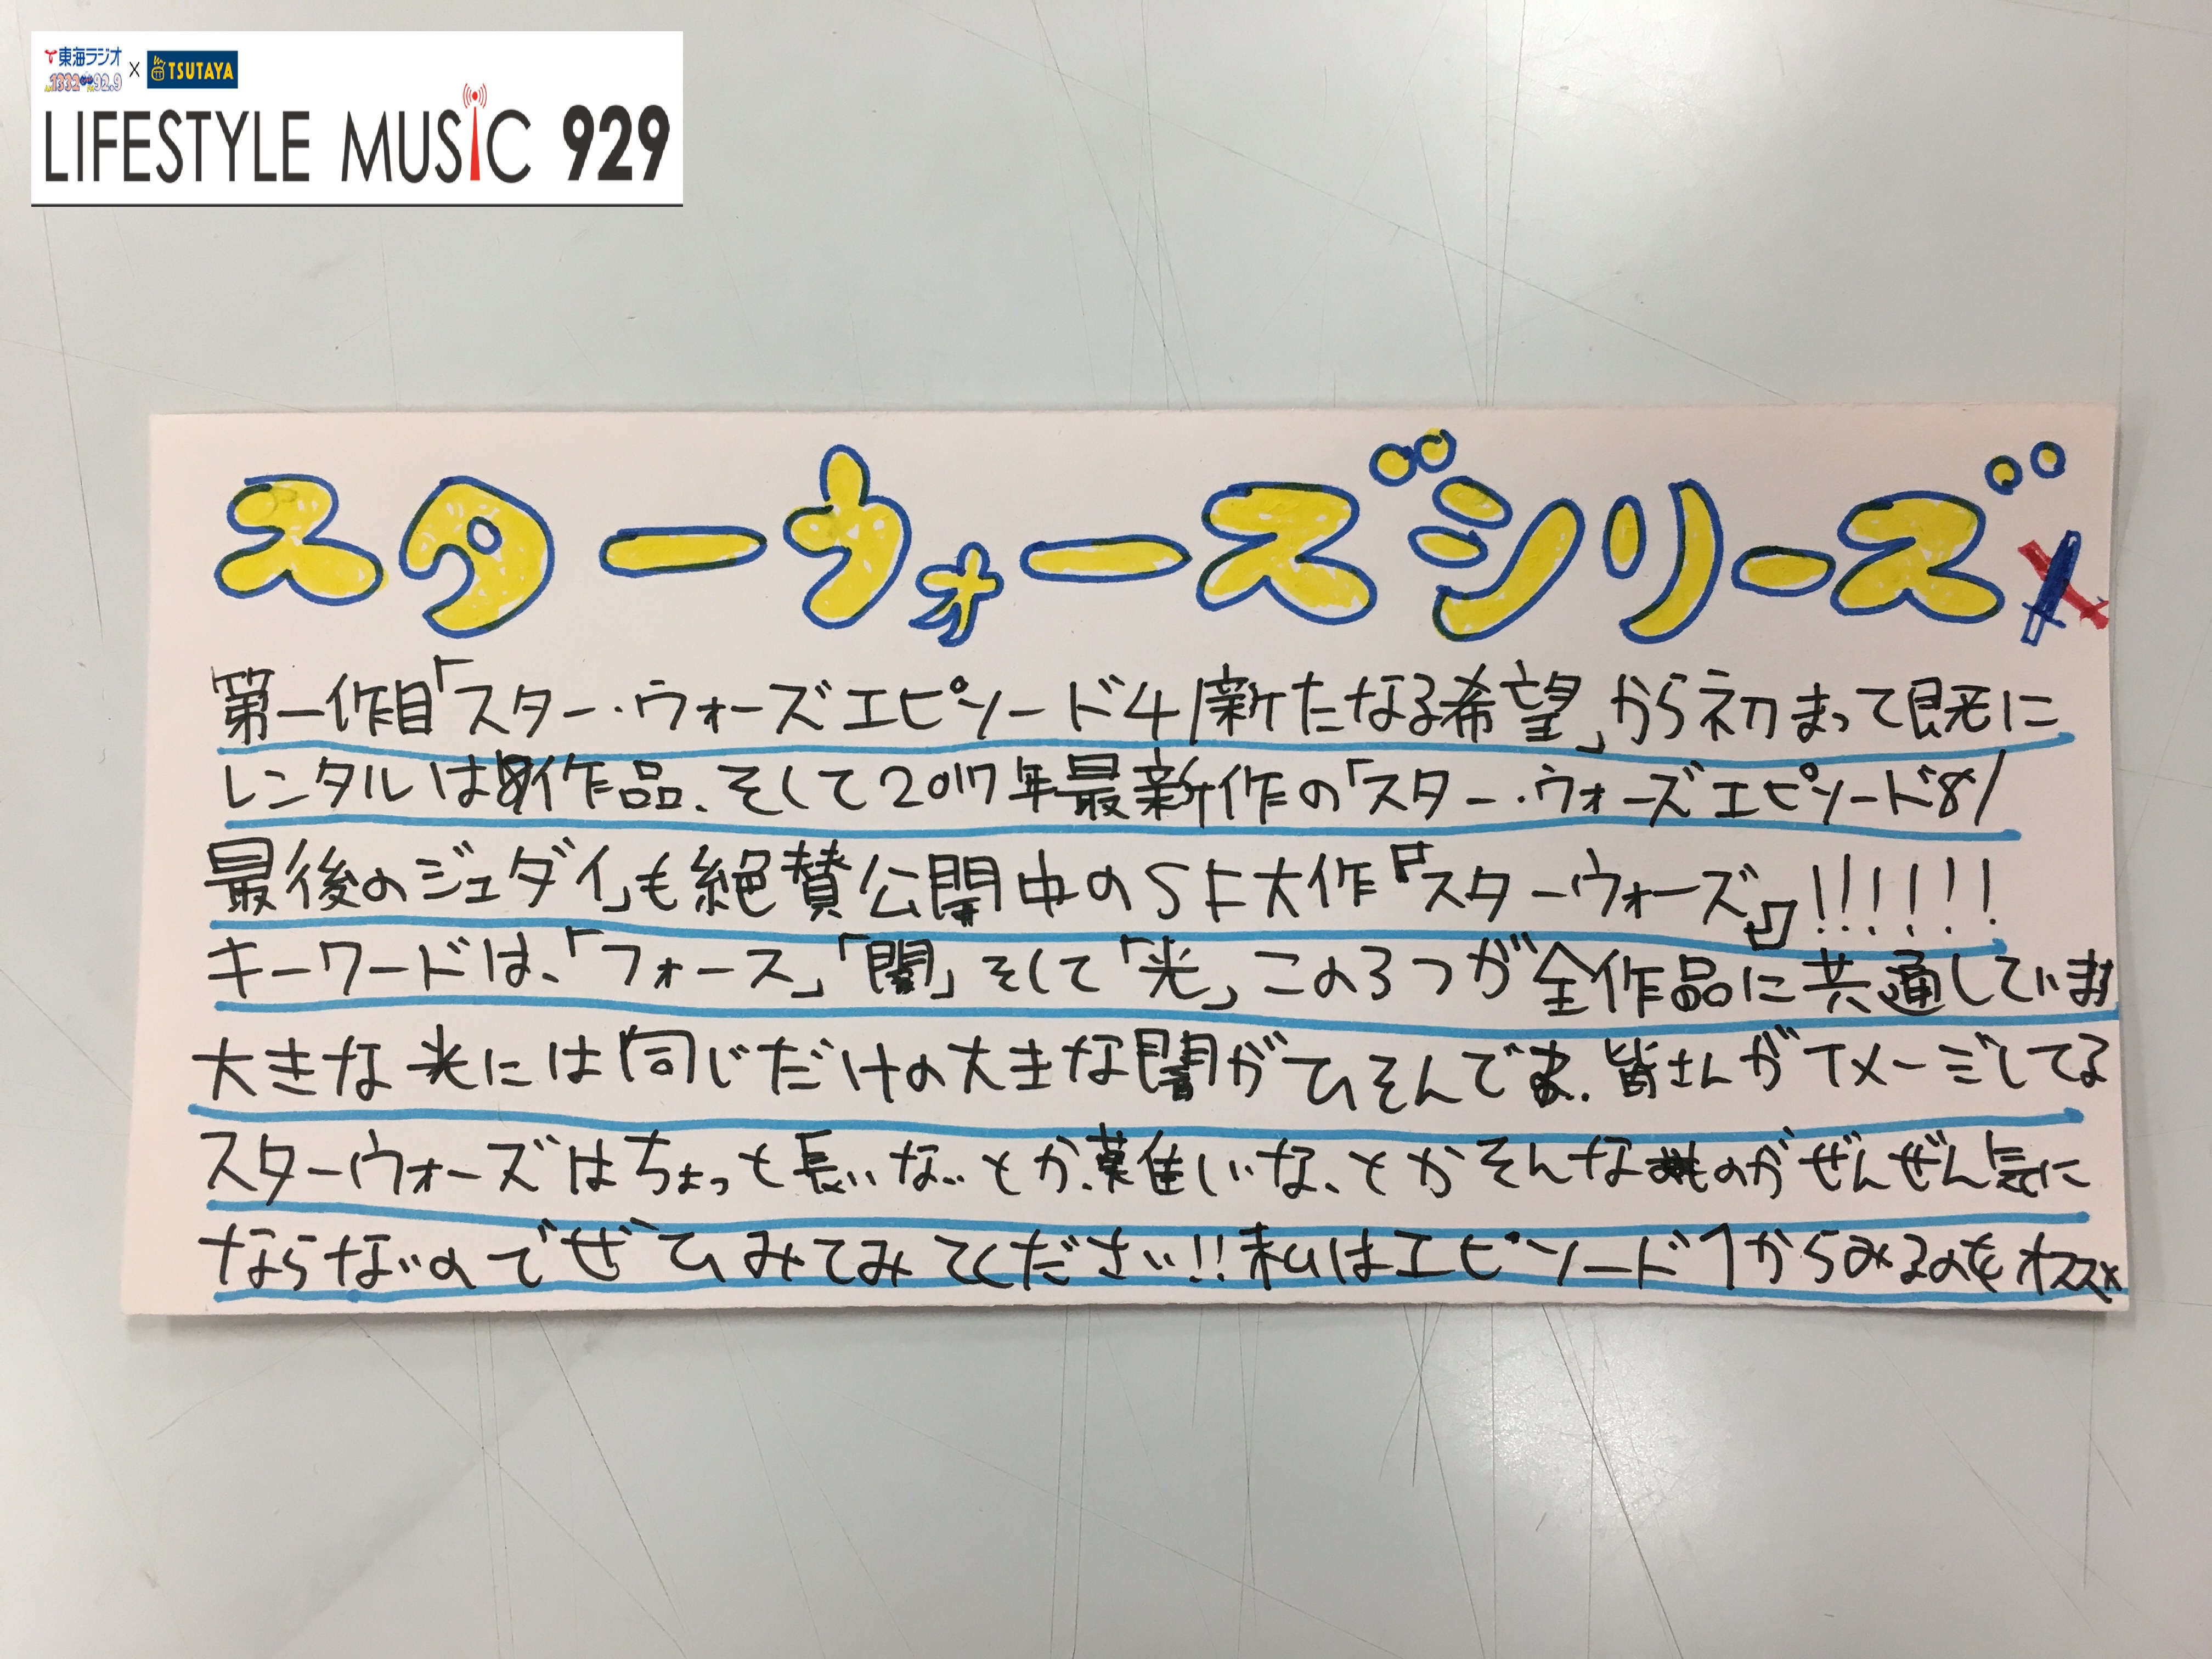 東海ラジオ
1332 92.9
×
TSUTAYA
LIFESTYLE MUSIC 929
スターウォーズシリーズ
第一作目「スター・ウォーズエピソード4/新たなる希望」から初まって既に
レンタルは8作品、そして2017年最新作の「スター・ウォーズエピソード8/
最後のジェダイ」も絶賛公開中のSF大作『スターウォーズ』!!!!!!
キーワードは、「フォース」「闇」そして「光」この3つが全作品に共通しています
大きな光には同じだけの大きな闇がひそんでま。皆さんがイメージしてる
スターウォーズはちょっと長いな…とか、難しいな、とかそんなものがぜんぜん気に
ならないのでぜひみてみてください!!私はエピソード1からみるのをオススメ